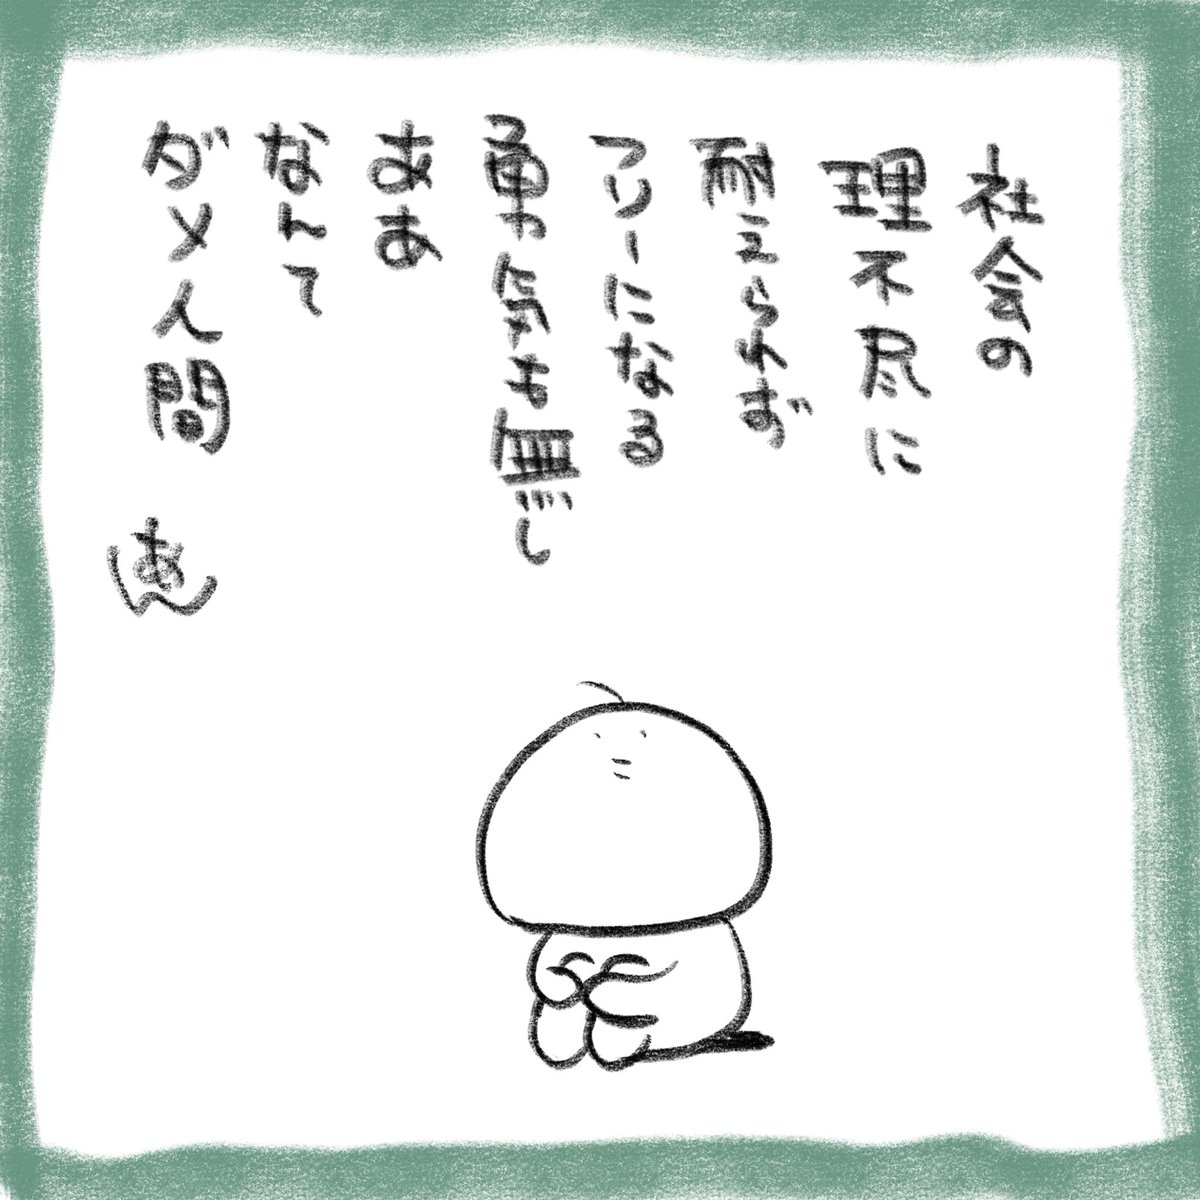 社会の
理不尽に
耐えられず
フリーになる
勇気も無し
ああ
なんて
ダメ人間
あ